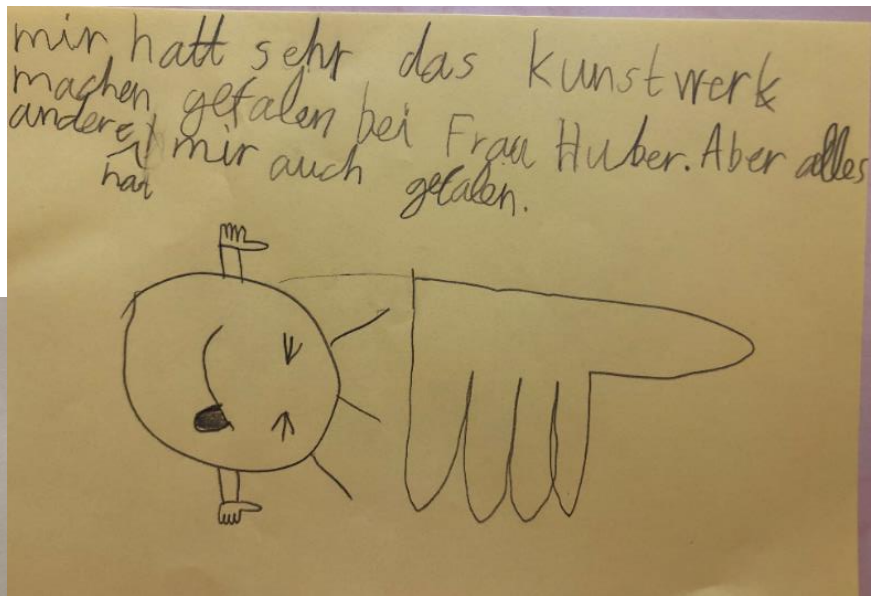 mir hatt sehr das Kunstwerk
machen gefalen bei Frau Huber. Aber alles
andere hat mir auch gefalen.